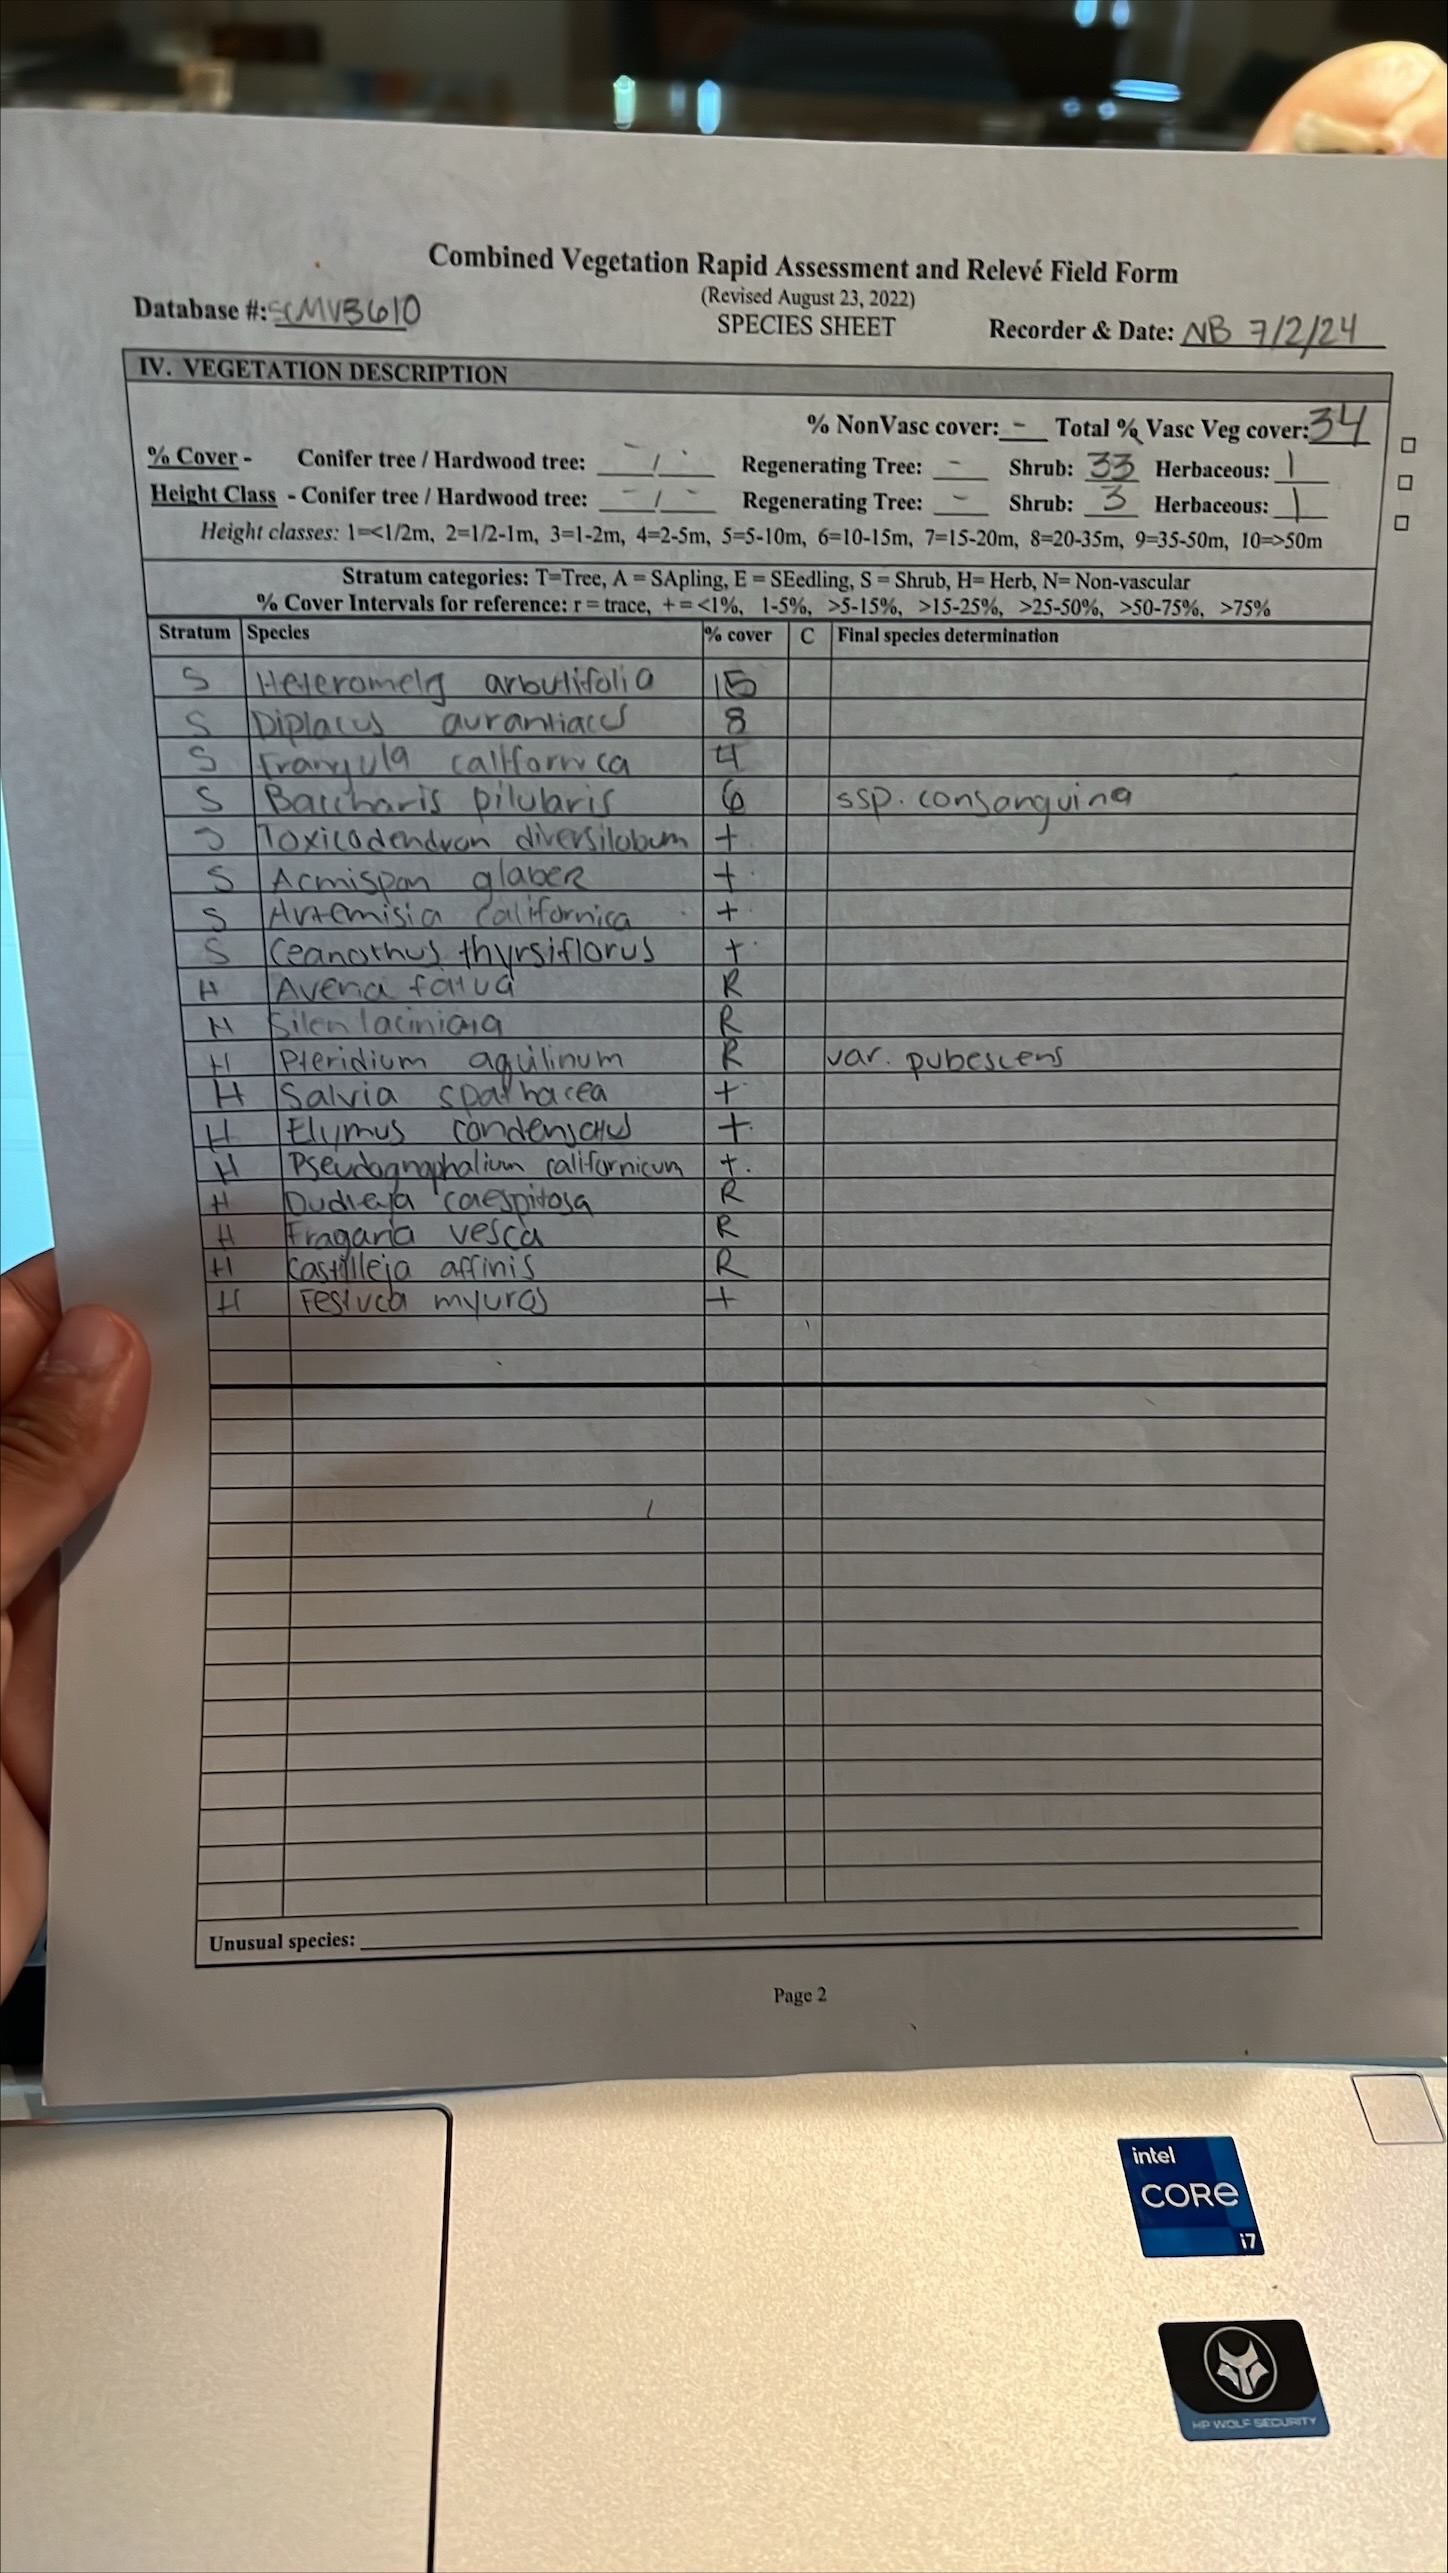 Combined Vegetation Rapid Assessment and Relevé Field Form
(Revised August 23, 2022)
Database #: SCMVB610 SPECIES SHEET Recorder & Date: NB 7/2/24
IV. VEGETATION DESCRIPTION
% NonVasc cover: - Total % Vasc Veg cover: 34
% Cover - Conifer tree / Hardwood tree: - / - Regenerating Tree: - Shrub: 33 Herbaceous: 1
Height Class - Conifer tree / Hardwood tree: - / - Regenerating Tree: - Shrub: 3 Herbaceous: 1
Height classes: 1=<1/2m, 2=1/2-1m, 3=1-2m, 4=2-5m, 5=5-10m, 6=10-15m, 7=15-20m, 8=20-35m, 9=35-50m, 10=>50m
Stratum categories: T=Tree, A = SApling, E = SEedling, S = Shrub, H= Herb, N= Non-vascular
% Cover Intervals for reference: r = trace, + = <1%, 1-5%, >5-15%, >15-25%, >25-50%, >50-75%, >75%
Stratum Species % cover C Final species determination
S Heteromela arbutifolia 15
S Diplacus aurantiacus 8
S Frangula californica 4
S Baccharis pilularis 6 ssp. consanguina
S Toxicodendron diversilobum +
S Acmispon glabeR +
S Artemisia californica +
S Ceanothus thyrsiflorus +
H Avena fatua R
H Silen laciniata R
H Pteridium aquilinum R var. pubescens
H Salvia spathacea +
H Elymus condensatus +
H Pseudognaphalium californicum +
H Dudleya caespitosa R
H Fragaria vesca R
H Castilleja affinis R
H Festuca myuros +
Unusual species:
Page 2
intel
CORE
i7
HP WOLF SECURITY